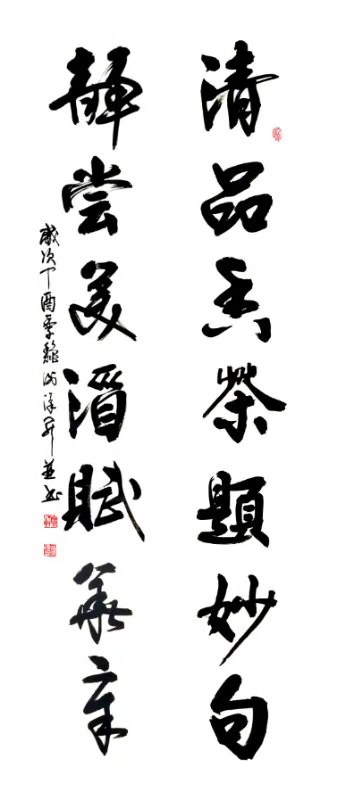 清品香茶題妙句
靜尝美酒賦華章
歲次丁酉